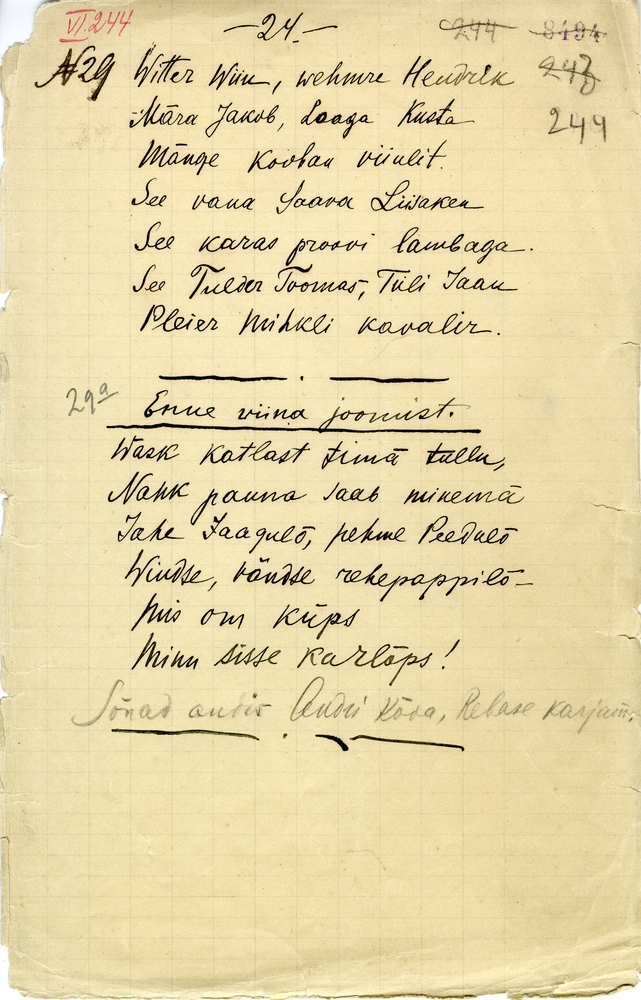 VI.244 — 24. — 244 8494
№29 Witter Wiiu, wehmre Hendrik 243
Mära Jakob, Laaga Kusta 244
Mänge kooban viiulit.
See vana Saava Liisaken
See karas proovi lambaga.
See Tulder Toomas, Tiili Jaan
Pleier Mihkli kavalir.
29a Enne viina joomist.
Wask katlast timä tullu,
Nahk pauna saab minemä
Jahe Jaagulõ, pehme Peedulõ
Windse, vändse rehepappilõ—
Mis om küps
Minu sisse karlõps!
Sõnad andis Andri Kõva, Rebase karjam.